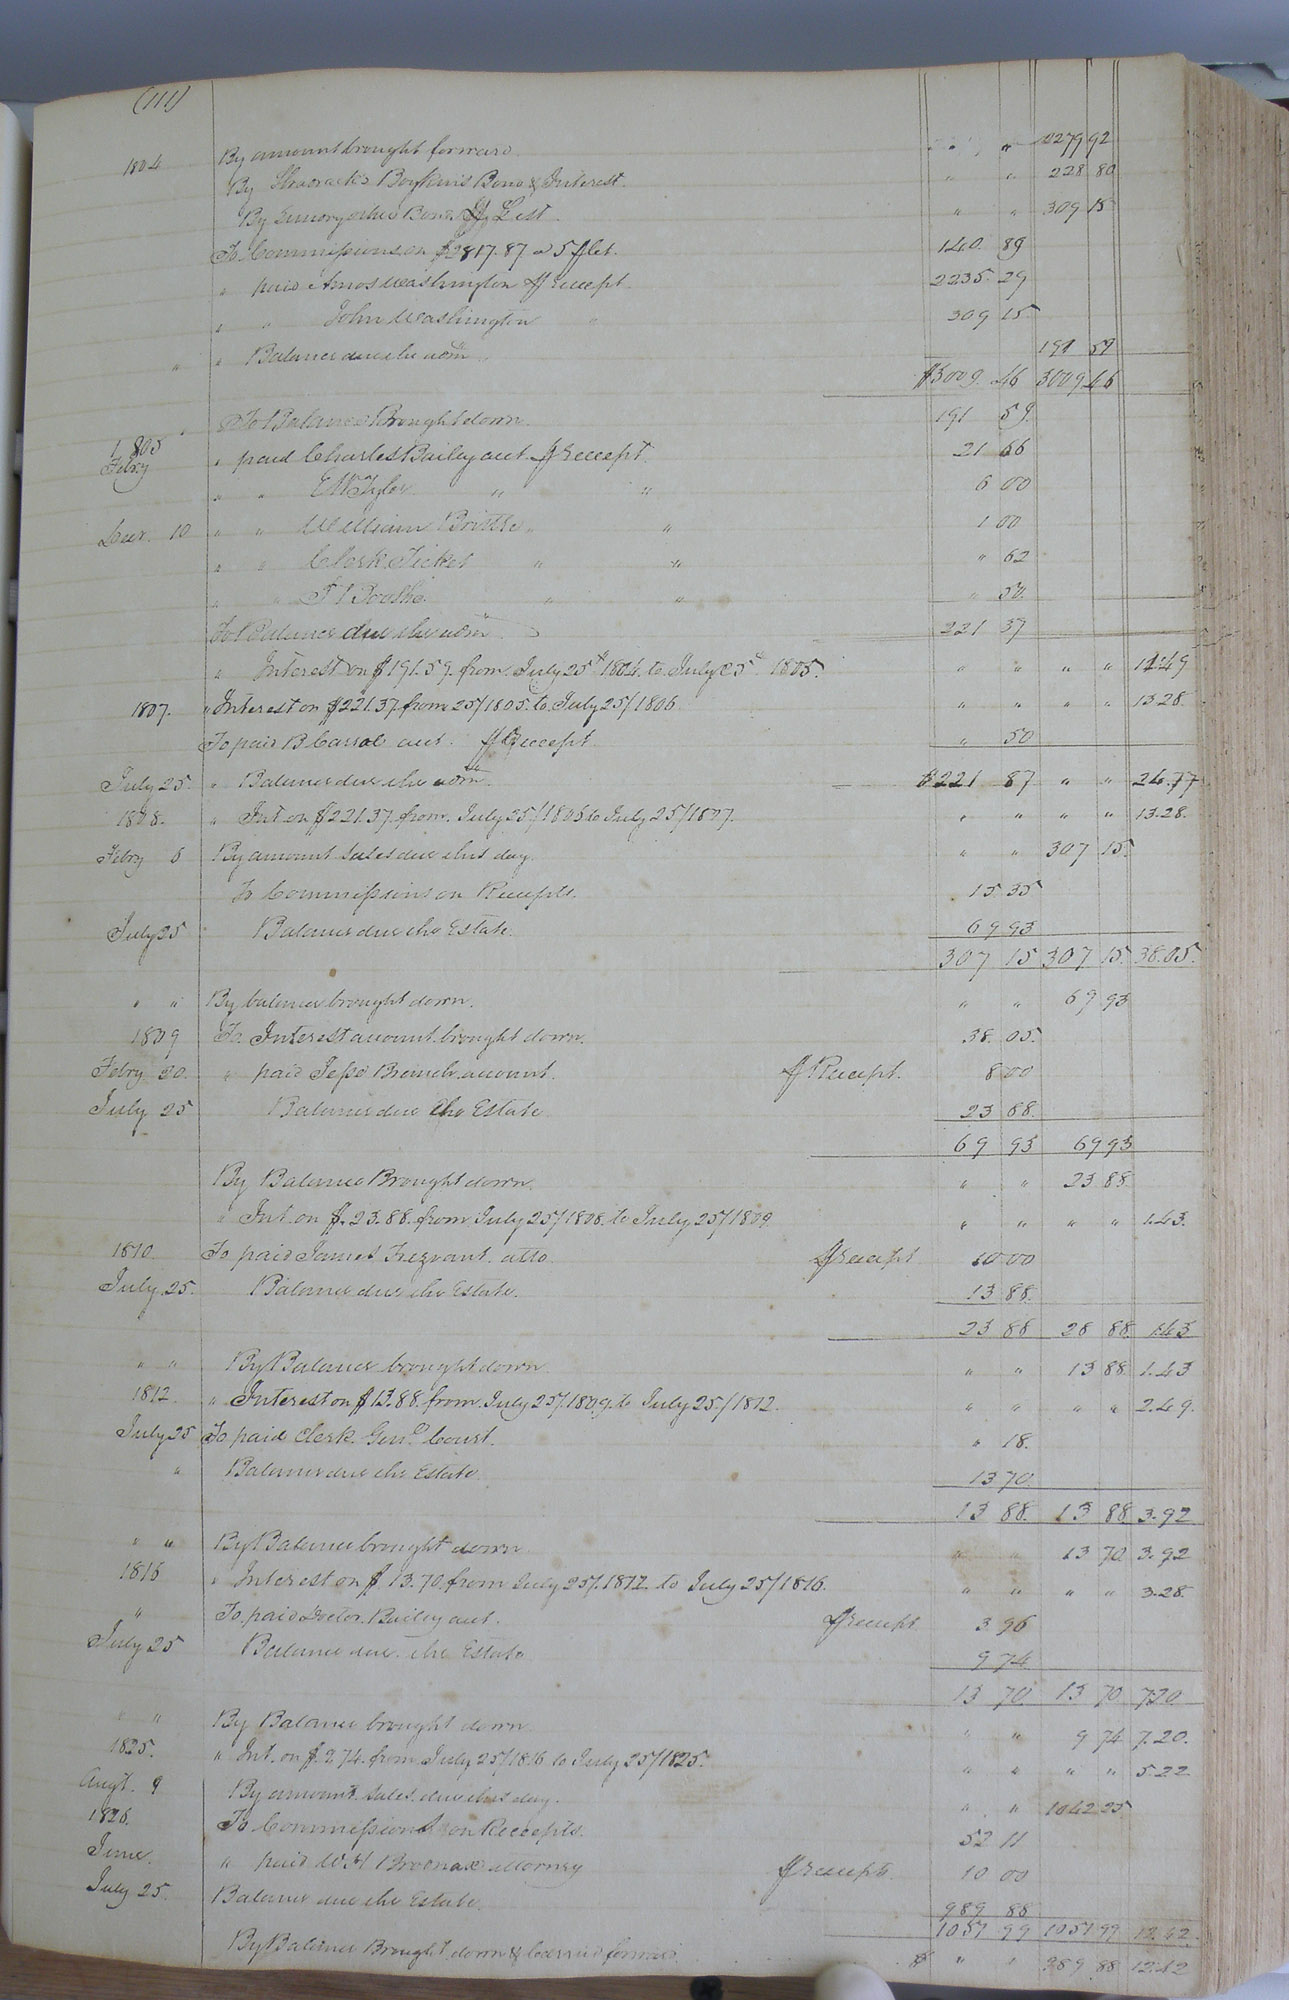 (111)
1804 By amount brought forward " " 2279 92
By Shadrack's Boykins Bond & Interest. " " 228 80
By sundry other Bonds ℔ List " " 309 15
To Commissions on $2817.87 @ 5 ℔ Ct. 140. 89
" paid Amos Washington ℔ Receipt 2235. 29
" " John Washington " 309 15
" " Balance due the adm 191 59
$3009. 46 3009 46
" To Balance Brought down 191 59
1805
Febry " paid Charles Bailey acct ℔ Receipt 21 66
" " E W Tyler " " 6 00
Decr. 10 " " William Boithe " " 1 00
" " Clerk Ticket " " " 62
" " " " " 50
To Balance due the adm 221 37
" Interest on $191.59. from July 25th 1804. to July 25th 1805. " " " " 11.49
1807. " Interest on $221.37 from 25/1805. to July 25/1806 " " " " 13.28
To paid B Carrol acct. ℔ Receipt " 50
July 25. " Balance due the adm $221 87 " " 24.77
1808. " Int on $221.37. from July 25/1806 to July 25/1807. " " " " 13.28.
Febry 6 By amount Sales due this day. " " 307 15.
To Commissions on Receipts. 15.35
July 25 Balance due the Estate. 69 93
307 15 307 15. 38.05.
" " By balance brought down. " " 69 93
1809 To Interest account brought down. 38. 05.
Febry 20. " paid Jesse Branch account. ℔ Receipt. 8 00
July 25 Balance due the Estate 23 88.
69 93 69 93
By Balance Brought down. " " 23 88
" Int. on $.23.88. from July 25/1808. to July 25/1809 " " " " 1.43.
1810. To paid James Trezvant. atto. ℔ receipt 10 00
July 25. Balance due the Estate. 13 88.
23 88 28 88 1.43
" " By Balance brought down " " 13 88 1.43
1812. " Interest on $13.88. from July 25/.1809. to July 25./1812. " " " " 2.49.
July 25 To paid Clerk Genl. Court. " 18.
" Balance due the Estate 13 70.
13 88. 13 88 3.92
" " By Balance brought down " " 13 70 3.92
1816 " Interest on $13.70 from July 25/.1812 to July 25/1816. " " " " 3.28.
" To paid Doctor. Bailey acct. ℔ receipt 3. 96
July 25 Balance due the Estate 9 74
13 70 13 70 7.20.
" " By Balance brought down " " 9 74 7.20.
1825. " Int. on $.9.74. from July 25/1816 to July 25/1825. " " " " 5.22
Augt. 9 By amount Sales due this day. " " 1042 25
1826. To Commissions on Receipts. 52 11
June. " paid W H Brodnax attorney ℔ receipt. 10 00
July 25. Balance due the Estate. 989 88
1051 99 1051 99 12.42.
By Balance Brought down & Carried forward $ " " 989 88 12.42